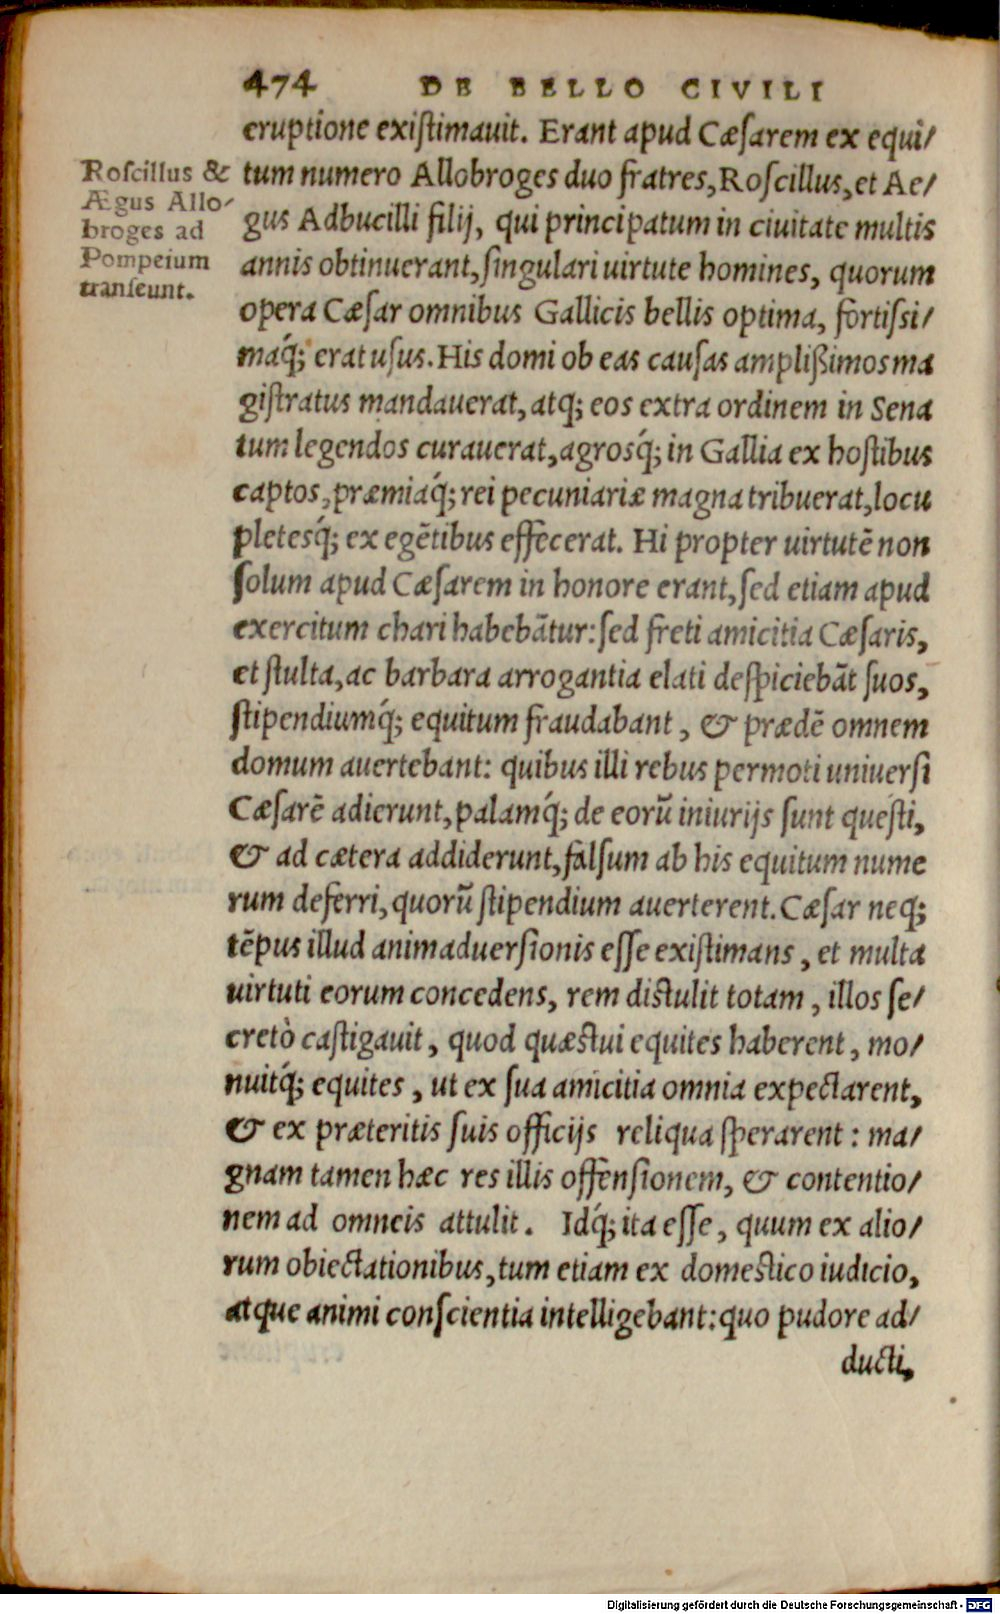 474 DE BELLO CIVILI
eruptione existimauit. Erant apud Cæsarem ex equi/
Roscillus &
Ægus Allo/
broges ad
Pompeium
transeunt.
tum numero Allobroges duo fratres, Roscillus, et Ae/
gus Adbucilli filij, qui principatum in ciuitate multis
annis obtinuerant, singulari uirtute homines, quorum
opera Cæsar omnibus Gallicis bellis optima, fortissi/
maq́; erat usus. His domi ob eas causas amplißimos ma
gistratus mandauerat, atq; eos extra ordinem in Sena
tum legendos curauerat, agrosq́; in Gallia ex hostibus
captos, præmiaq́; rei pecuniariæ magna tribuerat, locu
pletesq́; ex egētibus effecerat. Hi propter uirtutē non
solum apud Cæsarem in honore erant, sed etiam apud
exercitum chari habebātur: sed freti amicitia Cæsaris,
et stulta, ac barbara arrogantia elati despiciebāt suos,
stipendiumq́; equitum fraudabant, & prædē omnem
domum auertebant: quibus illi rebus permoti uniuersi
Cæsarē adierunt, palamq́; de eorū iniurijs sunt questi,
& ad cætera addiderunt, falsum ab his equitum nume
rum deferri, quorū stipendium auerterent. Cæsar neq;
tēpus illud animaduersionis esse existimans, et multa
uirtuti eorum concedens, rem distulit totam, illos se/
cretò castigauit, quod quæstui equites haberent, mo/
nuitq́; equites, ut ex sua amicitia omnia expectarent,
& ex præteritis suis officijs reliqua sperarent: ma/
gnam tamen hæc res illis offensionem, & contentio/
nem ad omneis attulit. Idq́; ita esse, quum ex alio/
rum obiectationibus, tum etiam ex domestico iudicio,
atque animi conscientia intelligebant: quo pudore ad/
ducti,
Digitalisierung gefördert durch die Deutsche Forschungsgemeinschaft - DFG